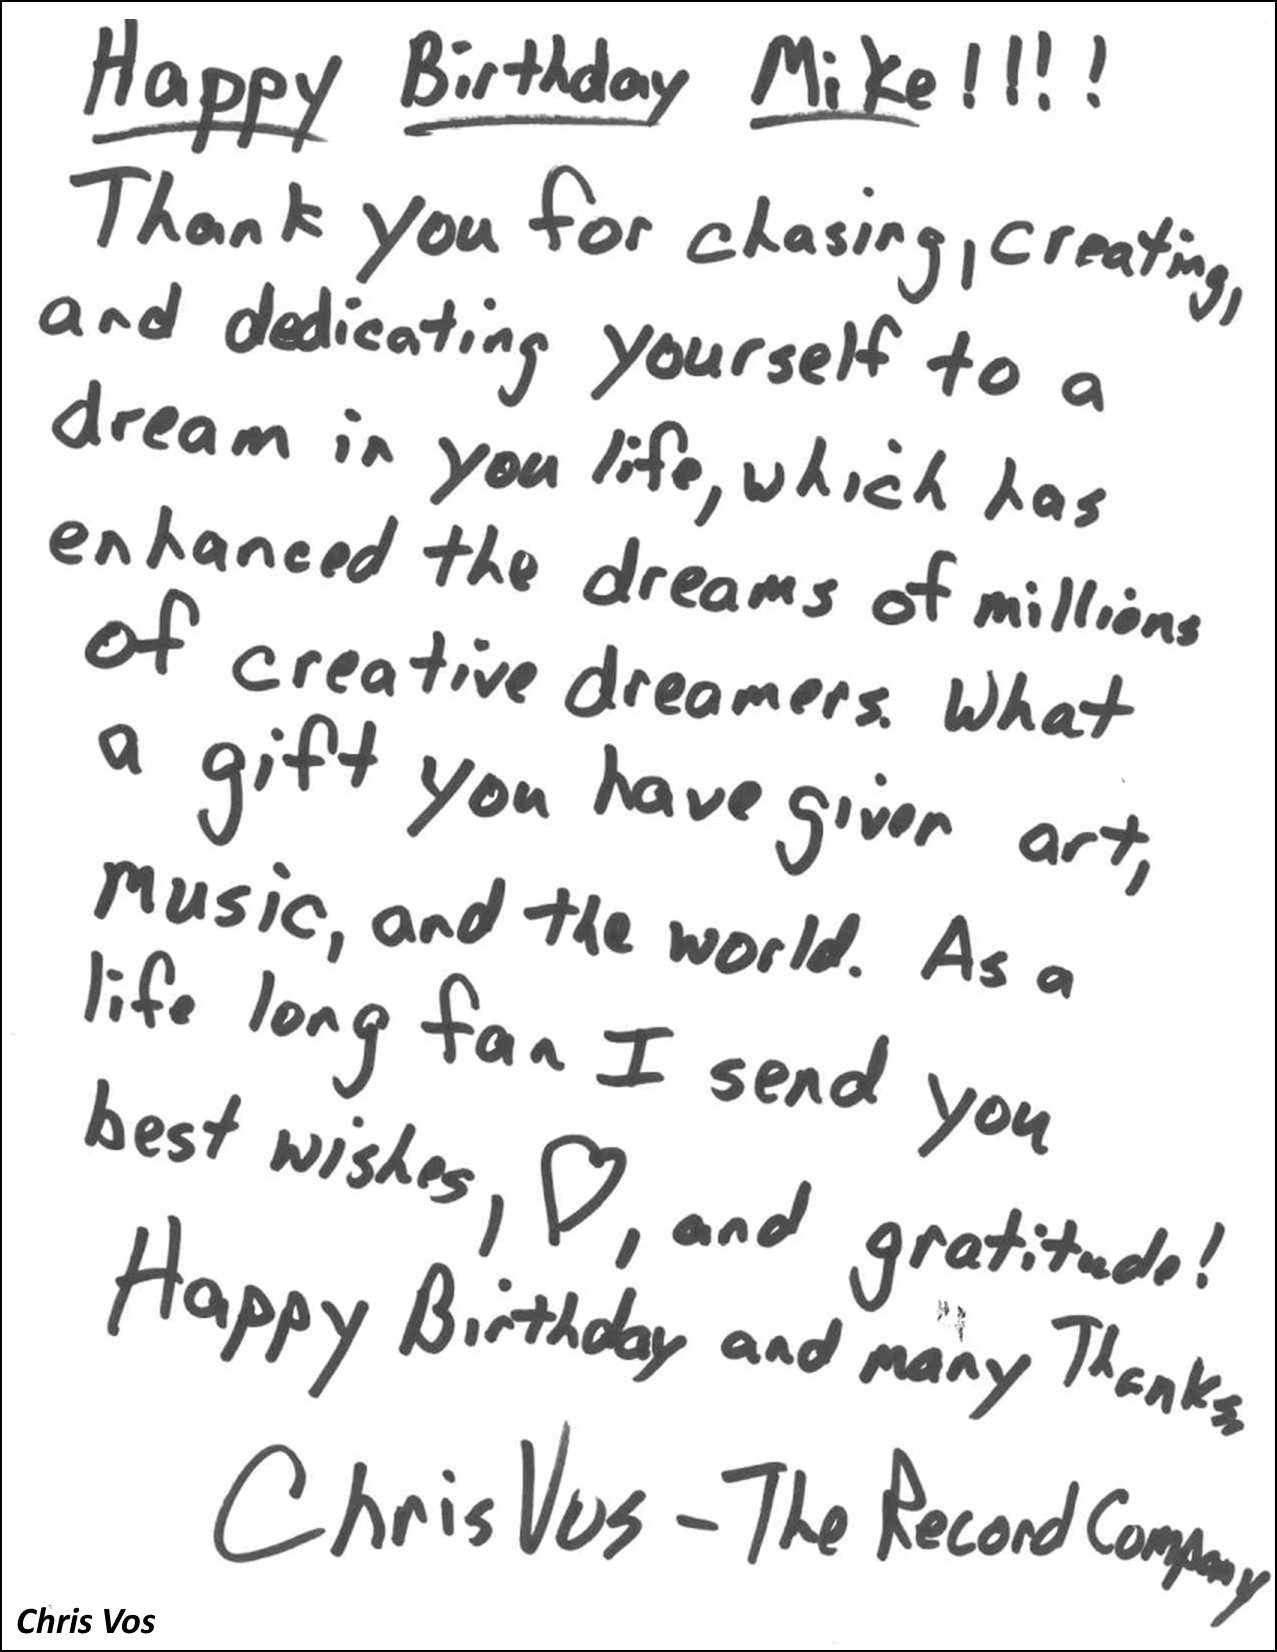 Happy Birthday Mike!!!!
Thank you for chasing, creating,
and dedicating yourself to a
dream in you life, which has
enhanced the dreams of millions
of creative dreamers. What
a gift you have given art,
music, and the world. As a
life long fan I send you
best wishes, ♡, and gratitude!
Happy Birthday and many Thanks
Chris Vos - The Record Company
Chris Vos